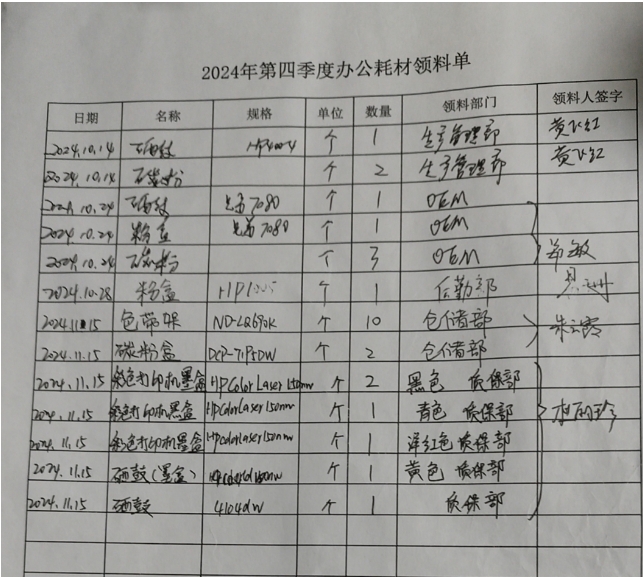 2024年第四季度办公耗材领料单
日期 名称 规格 单位 数量 领料部门 领料人签字
2024.10.14 硒鼓 个 1 生产管理部 黄飞红
2024.10.14 碳粉 个 2 生产管理部 黄飞红
2024.10.24 硒鼓 兄弟7080 个 1 OEM
2024.10.24 粉盒 兄弟7080 个 1 OEM
2024.10.24 碳粉 个 3 OEM 敏
2024.10.28 粉盒 个 1 后勤部
2024.11.15 色带架 ND-LQ690K 个 10 仓储部 朱云霞
2024.11.15 碳粉盒 个 2 仓储部
2024.11.15 彩色打印机墨盒 HPColorLaser150nw 个 2 黑色 质保部
2024.11.15 彩色打印机墨盒 HPcolorLaser150nw 个 1 青色 质保部
2024.11.15 彩色打印机墨盒 HPcolorLaser150nw 个 1 洋红色 质保部
2024.11.15 硒鼓(墨盒) 个 1 黄色 质保部
2024.11.15 硒鼓 4104dw 个 1 质保部